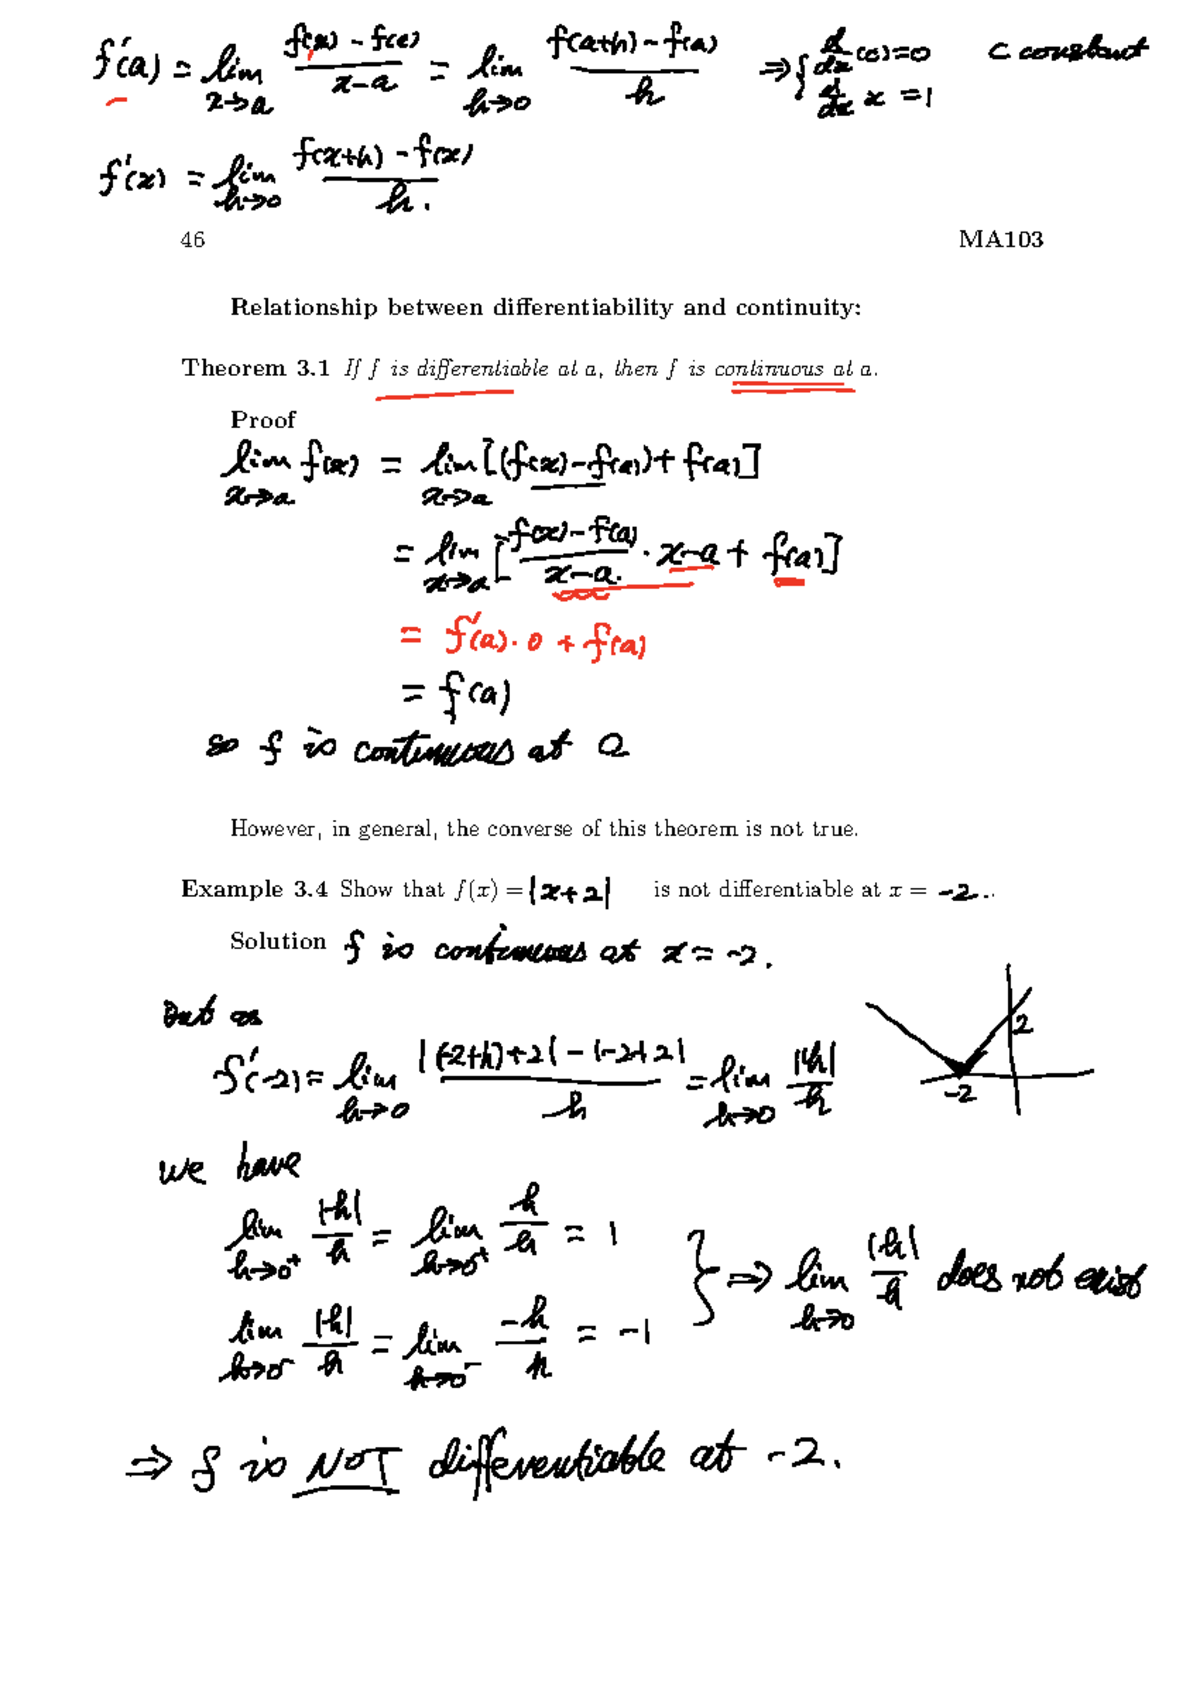 f'(a) = lim x→a (f(x) - f(a))/(x-a) = lim h→0 (f(a+h) - f(a))/h ⇒ { d/dx (c) = 0 c constant
d/dx x = 1
f'(x) = lim h→0 (f(x+h) - f(x))/h.
46 MA103
Relationship between differentiability and continuity:
Theorem 3.1 If f is differentiable at a, then f is continuous at a.
Proof
lim x→a f(x) = lim x→a [(f(x) - f(a)) + f(a)]
= lim x→a [(f(x) - f(a))/(x-a) · x-a + f(a)]
= f'(a) · 0 + f(a)
= f(a)
so f is continuous at a
However, in general, the converse of this theorem is not true.
Example 3.4 Show that f(x) = |x+2| is not differentiable at x = -2..
Solution f is continuous at x = -2.
but as
2
f'(-2) = lim h→0 (|(-2+h)+2| - |-2+2|)/h = lim h→0 |h|/h
-2
we have
lim h→0⁺ |h|/h = lim h→0⁺ h/h = 1
} ⇒ lim h→0 |h|/h does not exist
lim h→0⁻ |h|/h = lim h→0⁻ -h/h = -1
⇒ f is NOT differentiable at -2.